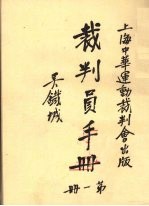 上海中華運動裁判會出版
裁判員手冊
吳鐵城
第一冊